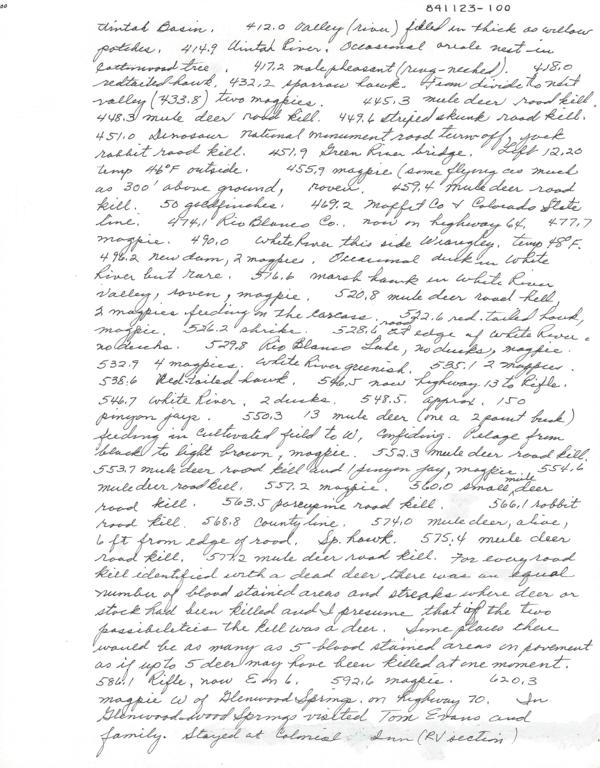 00
841123-100
Uintah Basin. 412.0 Valley (river) filled in thick as willow
patches. 414.9 Uintah River. Occasional oriole nest in
cottonwood tree. 417.2 male pheasant (ring-necked). 418.0
redtailed hawk. 432.2 sparrow hawk. From divide to next
valley (433.8) two magpies. 445.3 mule deer road kill.
448.3 mule deer road kill. 449.6 striped skunk road kill.
451.0 Dinosaur National Monument road turn-off, jack
rabbit road kill. 451.9 Green River bridge. Left 12,20
temp 46°F outside. 455.9 magpie (some flying as much
as 300' above ground, raven. 459.4 Mule deer road
kill. 50 goldfinches. 469.2 Moffit Co & Colorado State
line. 474.1 Rio Blanco Co. now on highway 64. 477.7
magpie. 490.0 White River this side Wrangley. temp 48°F.
496.2 new dam, 2 magpies. Occasional duck in White
River but rare. 516.6 marsh hawk in White River
Valley, raven, magpie. 520.8 mule deer road kill,
2 magpies feeding on the carcass. 522.6 red-tailed hawk,
magpie. 526.2 shrike. 528.6 road at edge of White River.
no ducks. 529.8 Rio Blanco Lake, no ducks, magpie.
532.9 4 magpies. White River greenish. 535.1 2 magpies.
538.6 Red-tailed hawk. 546.5 now highway 13 to Rifle.
546.7 White River. 2 ducks. 548.5. approx. 150
pinyon jays. 550.3 13 mule deer (one a 2 point buck)
feeding in cultivated field to W, confiding. Pelage from
black to light brown, magpie. 552.3 mule deer road kill.
553.7 mule deer road kill and 1 pinyon jay, magpie. 554.6
mule deer road kill. 557.2 magpie. 560.0 small mule deer
road kill. 563.5 porcupine road kill. 566.1 rabbit
road kill. 568.8 County line. 574.0 mule deer, alive,
6 ft from edge of road. Sp. hawk. 575.4 mule deer
road kill. 577.2 mule deer road kill. For every road
kill identified with a dead deer there was an equal
number of blood stained areas and streaks where deer or
stock had been killed and I presume that of the two
possibilities the kill was a deer. Some places there
would be as many as 5 blood stained areas on pavement
as if up to 5 deer may have been killed at one moment.
586.1 Rifle, now E on 6. 592.6 magpie. 620.3
magpie W of Glenwood Springs. on highway 70. In
Glenwood-wood Springs visited Tom Evans and
family. Stayed at Colonial Inn (RV section)